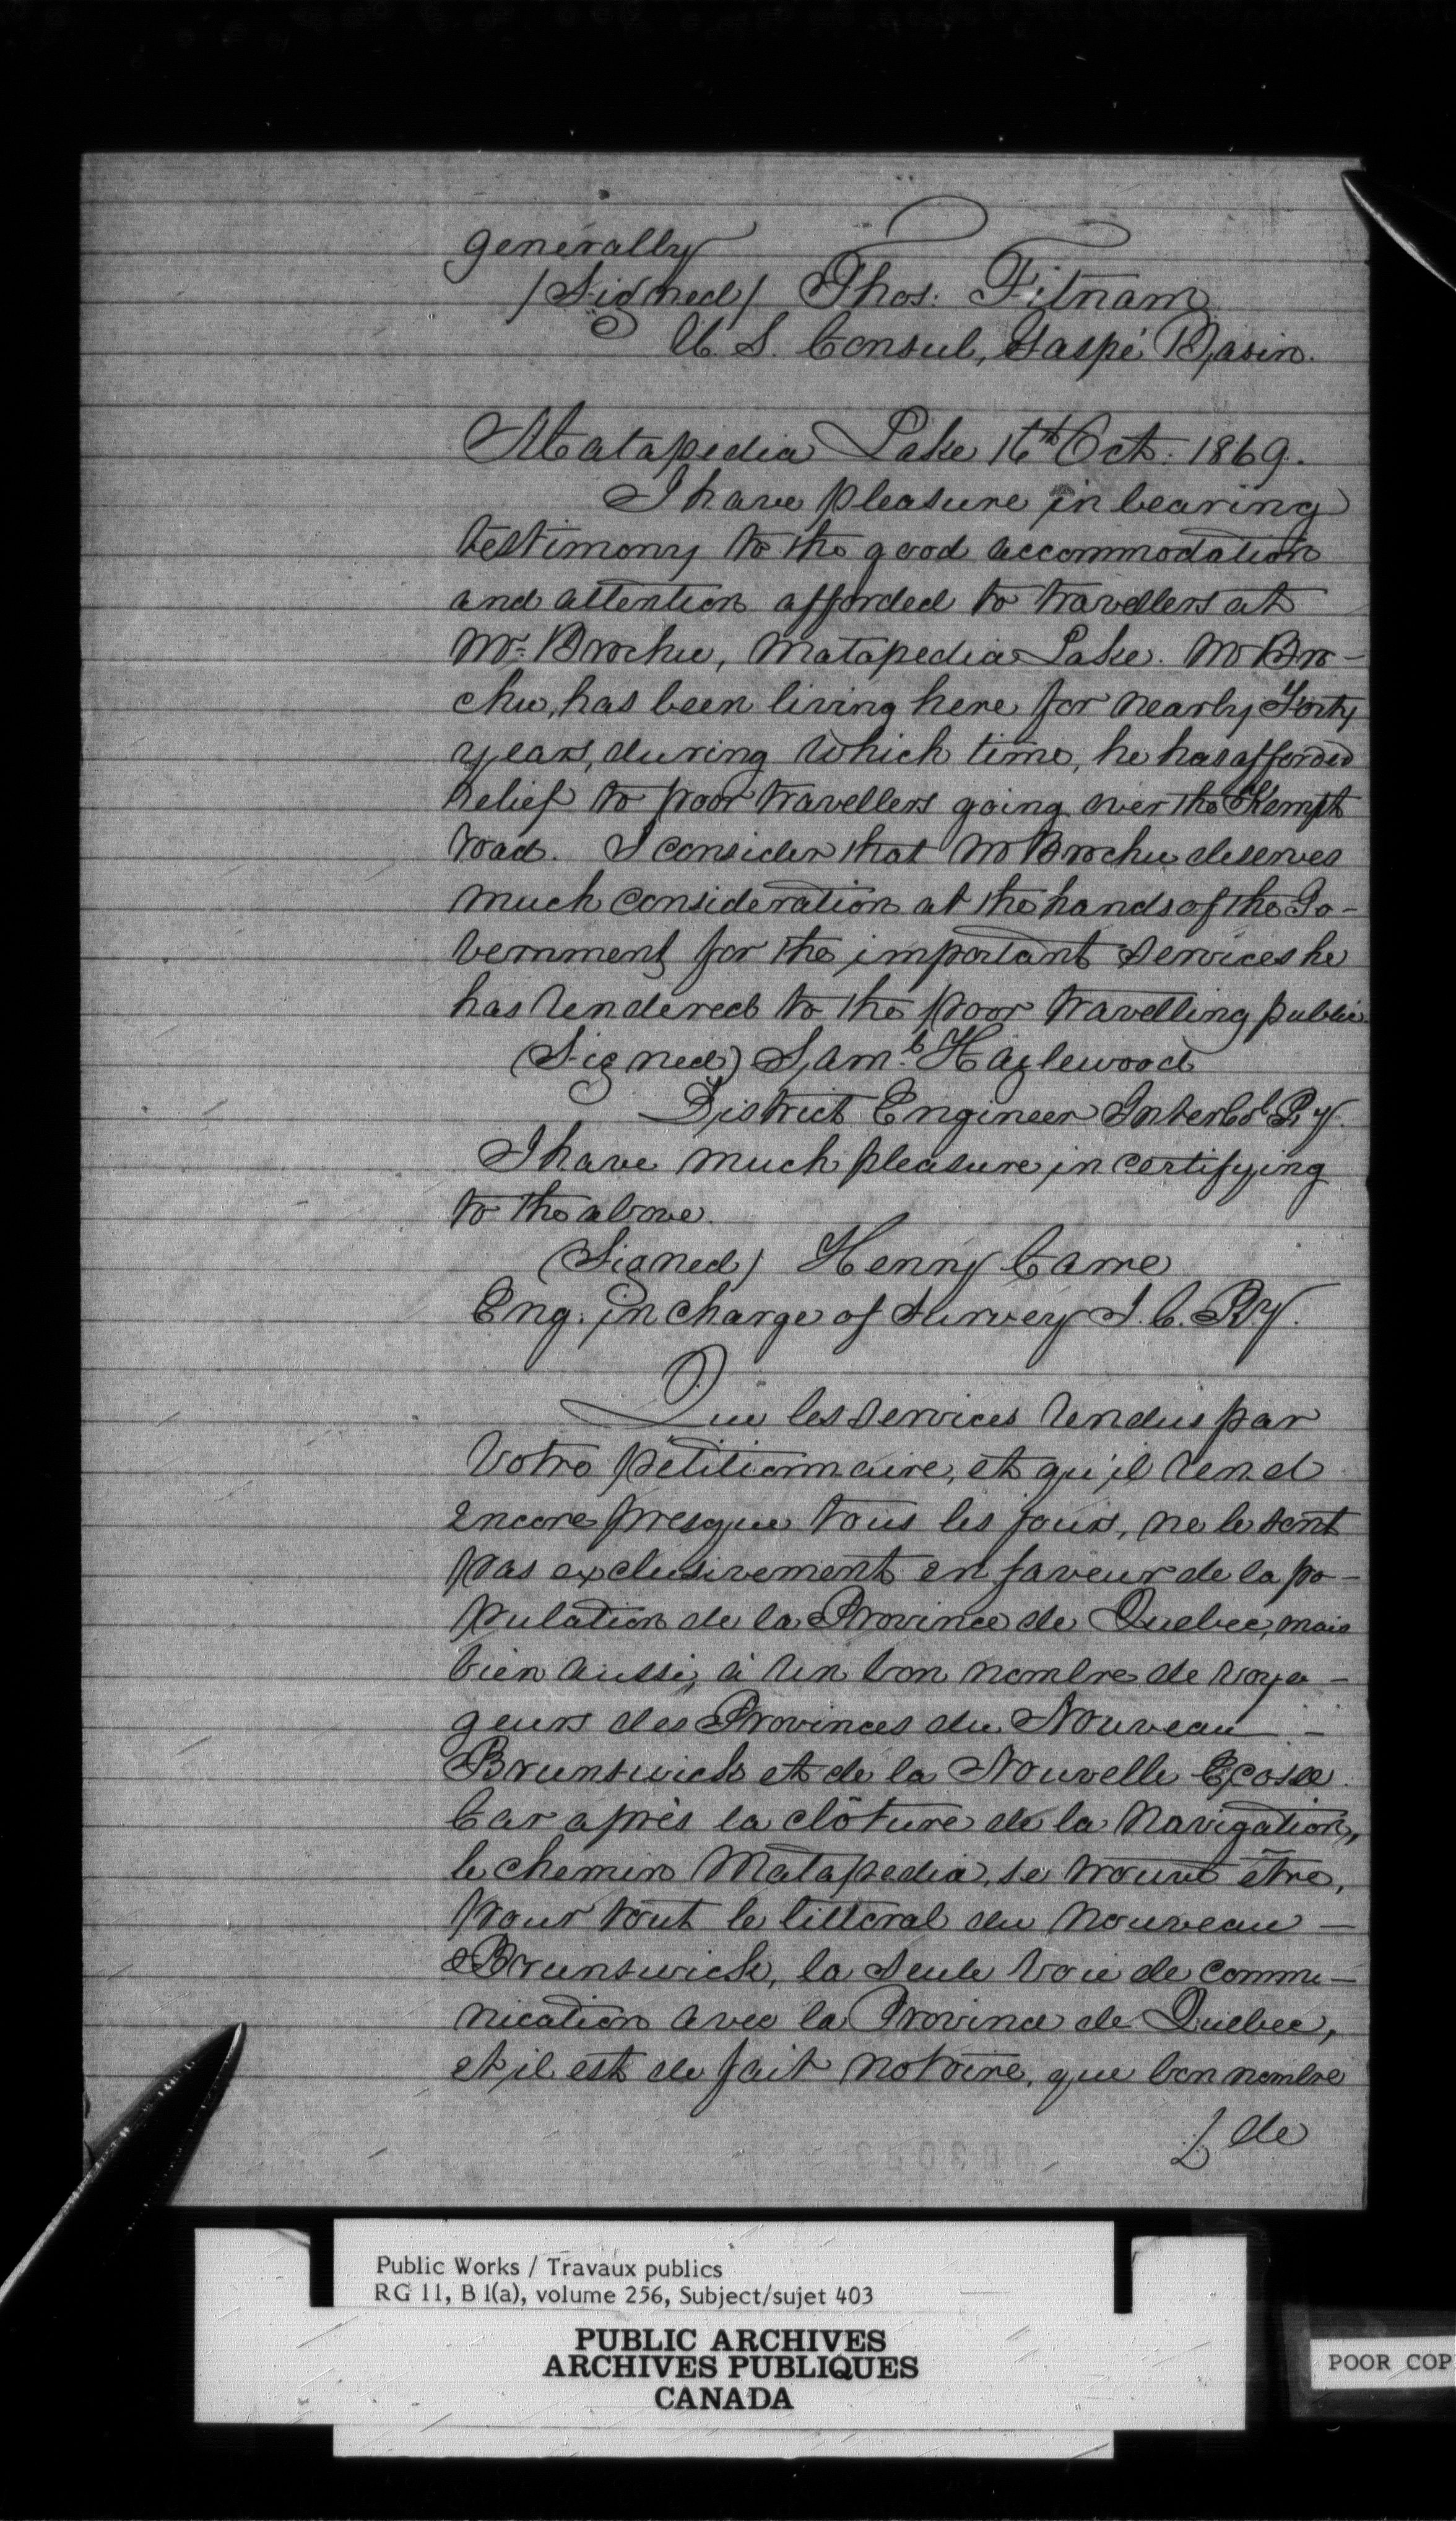 generally
(Signed) Thos: Fitnam
U. S. Consul, Gaspé Basin.
Matapedia Lake 16th Oct: 1869.
I have pleasure in bearing
testimony to the good accommodation
and attention afforded to travellers at
Mr: Brochu, Matapedia Lake. M Bro-
chu, has been living here for nearly Forty
years, during which time, he has afforded
relief to poor travellers going over the Kempt
road. I consider that M Brochu deserves
much consideration at the hands of the Go-
vernment for the important services he
has rendered to the poor travelling public.
(Signed) Saml. Hazlewood
District Engineer Intercol Ry.
I have much pleasure in certifying
to the above.
(Signed) Henry Carre
Eng: in charge of survey I. C. Ry.
Que les services rendus par
Votre pétitionnaire, et qu'il rend
encore presque tous les jours, ne le sont
pas exclusivement en faveur de la po-
pulation de la Province de Quebec, mais
bien aussi, à un bon nombre de voya-
geurs des Provinces du Nouveau-
Brunswick et de la Nouvelle Ecosse.
Car après la clôture de la Navigation,
le chemin Matapedia, se trouve être,
pour tout le littoral du Nouveau-
Brunswick, la seule voie de commu-
nication avec la Province de Quebec,
et il est de fait notoire, que bon nombre
de
Public Works / Travaux publics
RG 11, B 1(a), volume 256, Subject/sujet 403
PUBLIC ARCHIVES
ARCHIVES PUBLIQUES
CANADA
POOR COP